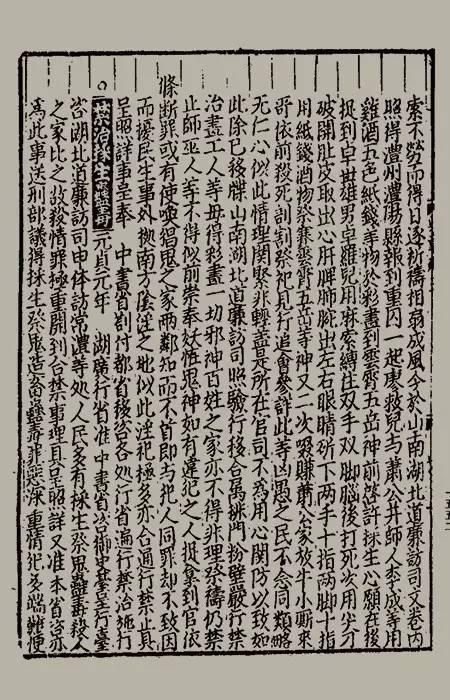 索不勞而得日逐祈禱相扇成風今於山南湖北道廉訪司文卷內
照得澧州澧陽縣報到重囚一起廖救兒与蕭公并師人李成等用
雞酒五色紙錢等物於彩畫到雲霄五岳神前啓許採生心願在後
捉到卓世雄男卓罷兒用麻索縛住双手双脚腦後打死次用尖刀
破開肚皮取出心肝脾肺臟出左右眼睛斫下兩手十指兩脚十指
用紙錢酒物祭賽雲霄五岳等神又二次啜賺蕭公家放牛小厮來
哥依前殺死剖割祭祀見行追會參詳此等凶愚之民不念同類略
无仁心似此情理関緊非輕盖是所在官司不爲用心関防以致如
此除已移牒山南湖北道廉訪司照驗行移合属排門粉壁嚴行禁
治畫工人等毋得彩畫一切邪神百姓之家亦不得非理祭禱仍禁
止師巫人等不得似前崇奉妖怪鬼神如有違犯之人捉拿到官依
條断罪或有使喚猖鬼之家兩鄰知而不首即与犯人同罪却不致因
而擾民生事外拠南方虚淫之地似此淫祀極多亦合通行禁止具
呈照詳事呈奉 中書省劄付都省移咨各処行省遍行禁治施行
禁治採生祭鬼蠱毒 元貞元年 湖廣行省准 中書省咨御史臺呈行臺
咨湖北道廉訪司申体訪常澧等処人民多有採生祭鬼蠱毒殺人
之家比之故殺情罪極重開到合禁事理具呈照詳又准本省咨亦
爲此事送刑部議得採生祭鬼造畜蠱毒罪悪深重情犯多端難便